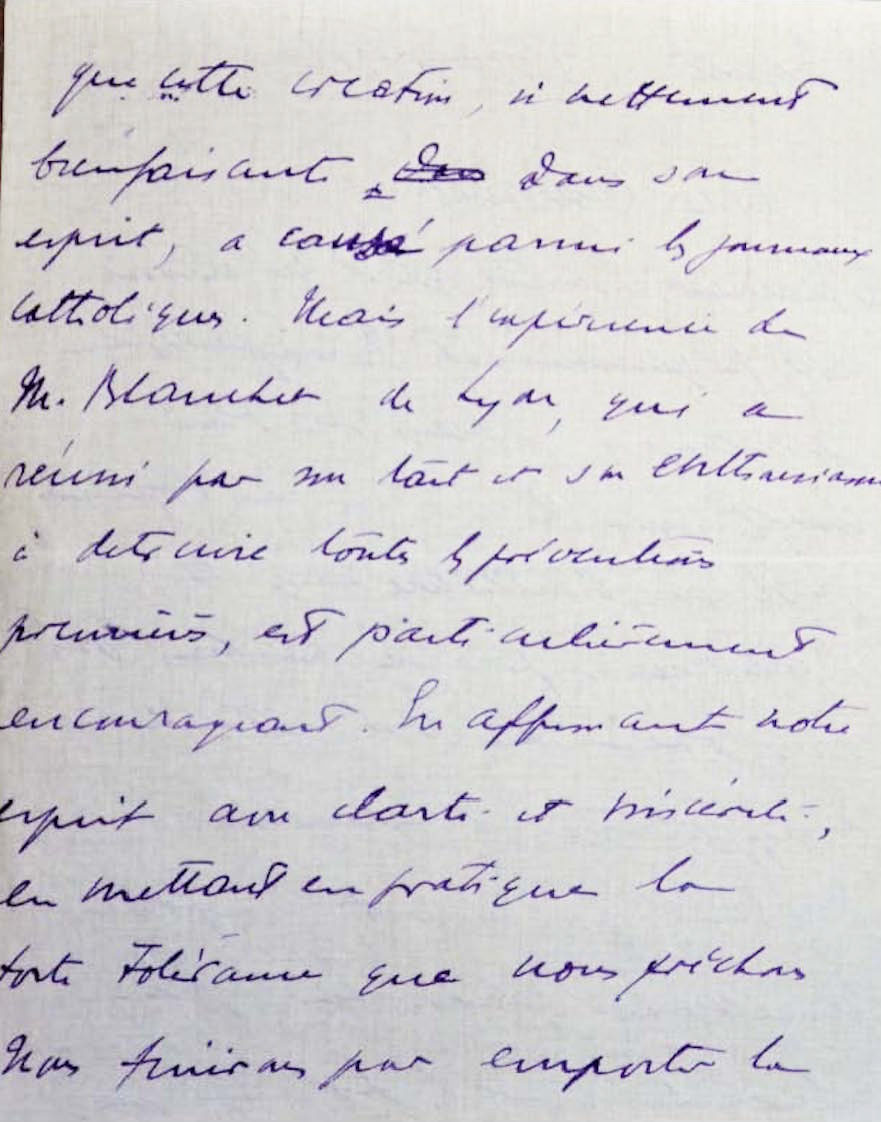 que cette création, si nettement
bienfaisante dans son
esprit, a causé parmi les journaux
catholiques. Mais l'expérience de
M. Blanchet de Lyon, qui a
réussi par son tact et son enthousiasme
à détruire toutes les préventions
premières, est particulièrement
encourageant. En affirmant notre
esprit avec clarté et sincérité,
en mettant en pratique la
forte Tolérance que nous prêchons
Nous finirons par emporter la